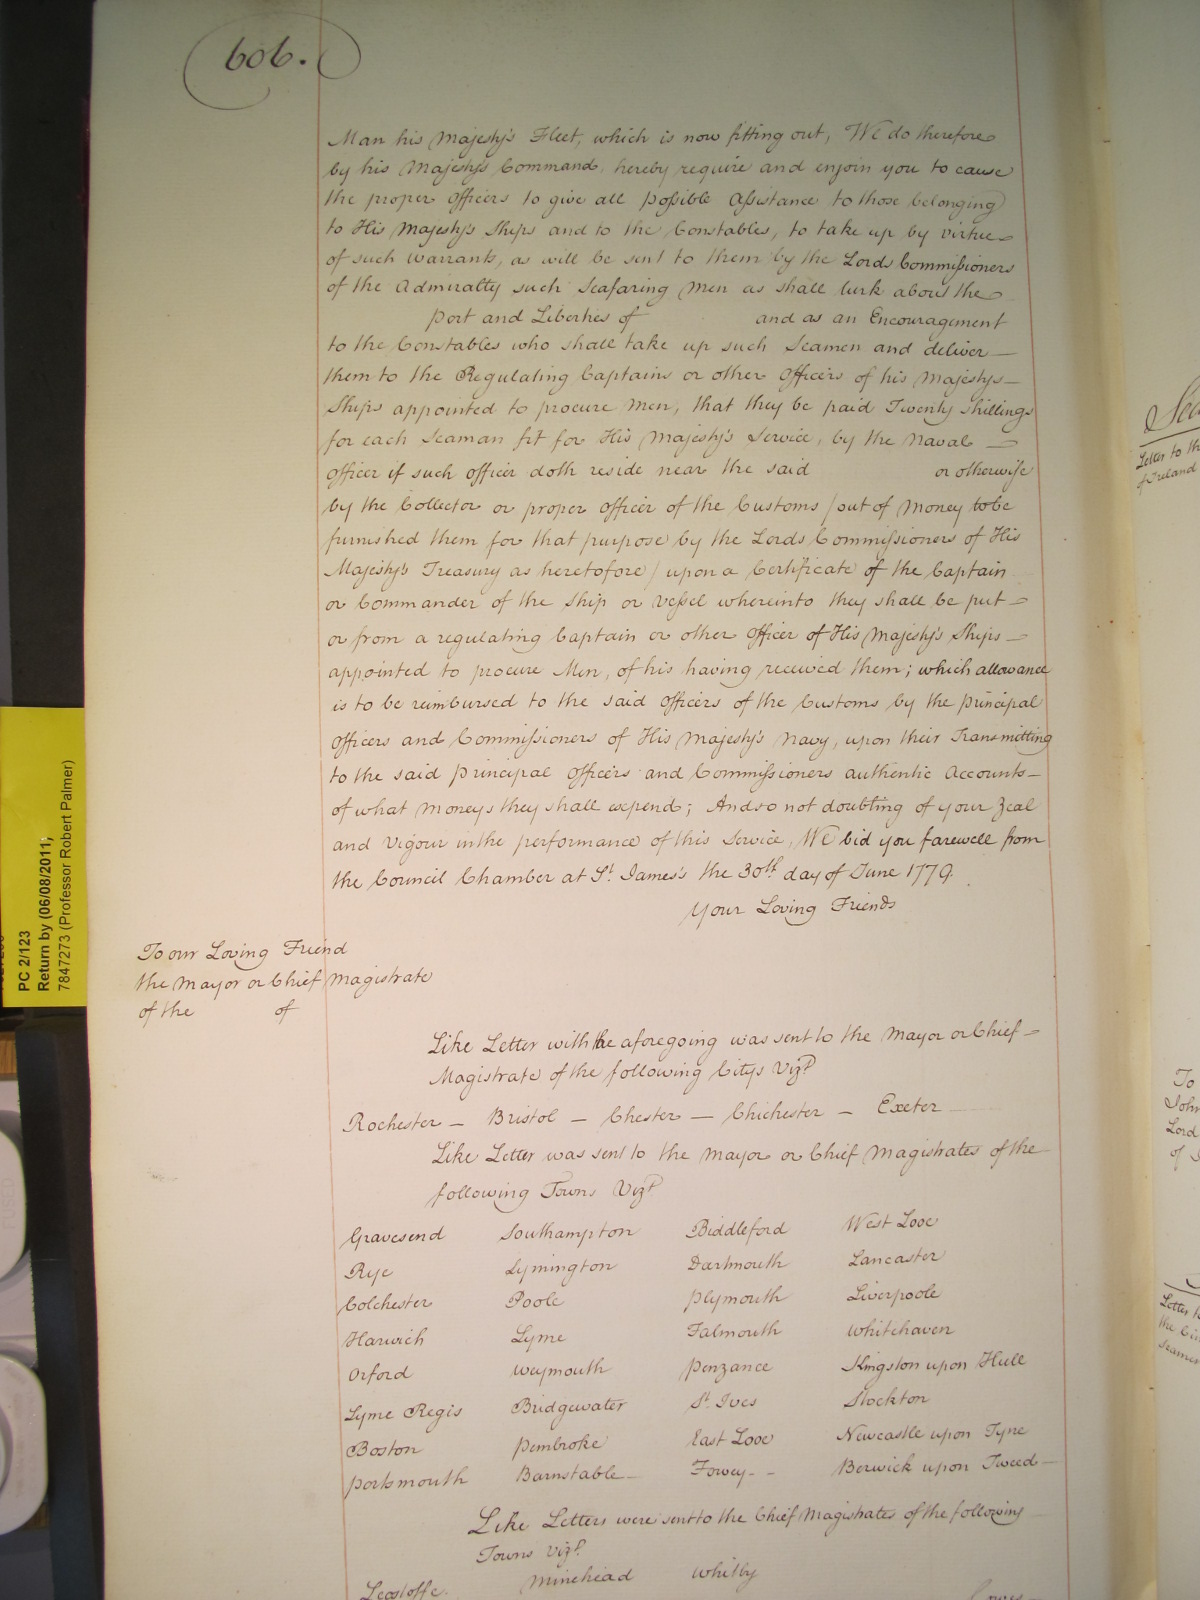 606.
Man his Majesty's Fleet, which is now fitting out, We do therefore
by his Majesty's Command, hereby require and enjoin you to cause
the proper Officers to give all possible Assistance to those belonging
to His Majesty's Ships and to the Constables, to take up by virtue
of such Warrants, as will be sent to them by the Lords Commissioners
of the Admiralty such Seafaring Men as shall lurk about the
Port and Liberties of and as an Encouragement
to the Constables who shall take up such Seamen and deliver
them to the Regulating Captains or other Officers of his Majestys
Ships appointed to procure Men, that they be paid Twenty Shillings
for each Seaman fit for His Majesty's Service, by the Naval
Officer if such Officer doth reside near the said or otherwise
by the Collector or proper Officer of the Customs /out of Money to be
furnished them for that purpose by the Lords Commissioners of His
Majesty's Treasury as heretofore/ upon a Certificate of the Captain
or Commander of the Ship or Vessel whereinto they shall be put
or from a regulating Captain or other Officer of His Majesty's Ships
appointed to procure Men, of his having received them; which allowance
is to be reimbursed to the said Officers of the Customs by the Principal
Officers and Commissioners of His Majesty's Navy, upon their Transmitting
to the said Principal Officers and Commissioners authentic Accounts
of what Moneys they shall expend; And so not doubting of your Zeal
and Vigour in the performance of this Service, We bid you farewell from
the Council Chamber at St. James's the 30th day of June 1779.
Your Loving Friends
To our Loving Friend
the Mayor or Chief Magistrate
of the of
Like Letter with the aforegoing was sent to the Mayor or Chief
Magistrate of the following Citys Vizt
Rochester — Bristol — Chester — Chichester — Exeter
Like Letter was sent to the Mayor or Chief Magistrates of the
following Towns Vizt
Gravesend Southampton Biddleford West Looe
Rye Lymington Dartmouth Lancaster
Colchester Poole Plymouth Liverpoole
Harwich Lyme Falmouth Whitehaven
Orford Weymouth Penzance Kingston upon Hull
Lyme Regis Bridgewater St. Ives Stockton
Boston Pembroke East Looe Newcastle upon Tyne
Portsmouth Barnstable Fowey Berwick upon Tweed
Like Letters were sent to the Chief Magistrates of the following
Towns Vizt.
Leostoffe Minehead Whitby
PC 2/123
Return by (06/08/2011;
7847273 (Professor Robert Palmer)
Letter to th
of Ireland
To
John
Lord
of I
Letter to
Seamen